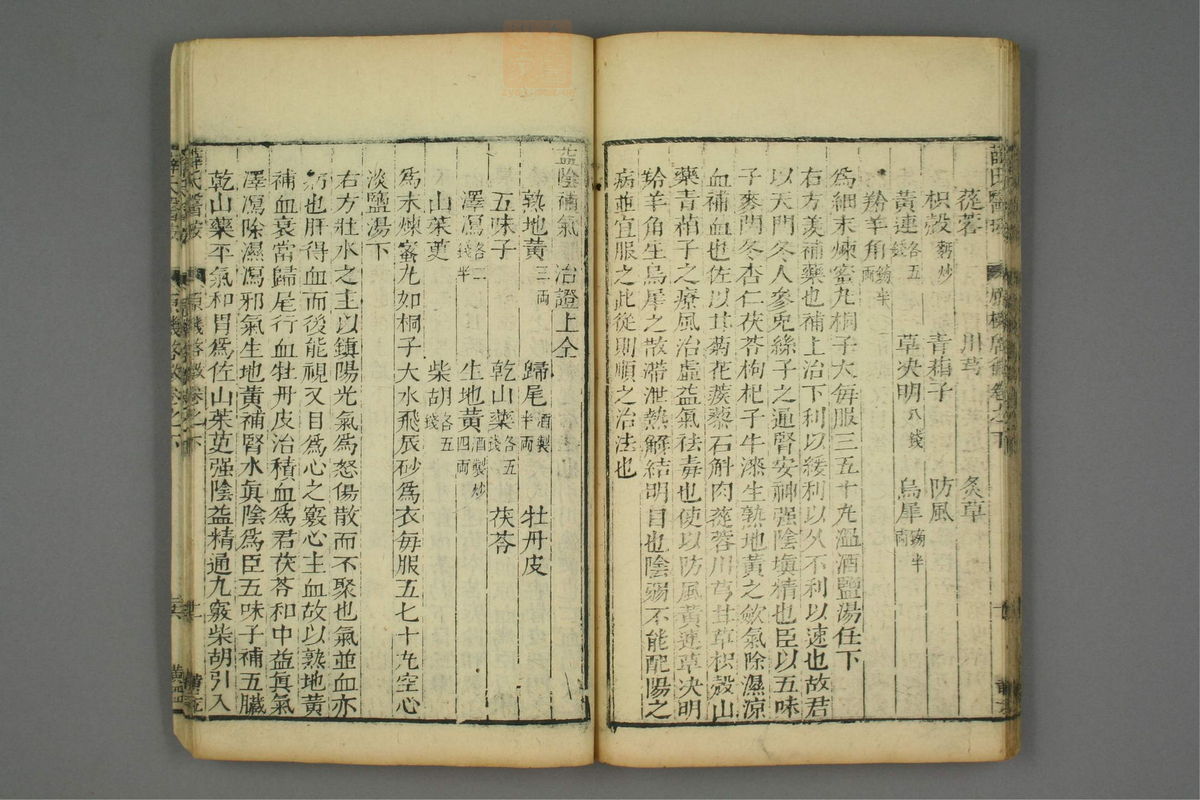 蓯蓉 川芎 炙草
枳殼麩炒 青葙子 防風
黃連各五錢 草决明八錢 烏犀鎊半兩
羚羊角鎊半兩
爲細末煉蜜丸桐子大每服三五十丸溫酒鹽湯任下
右方羨補藥也補上治下利以緩利以久不利以速也故君
以天門冬人參兎絲子之通腎安神强陰塡精也臣以五味
子麥門冬杏仁茯苓枸杞子牛漆生熟地黃之歛氣除濕凉
血補血也佐以甘菊花蒺藜石斛肉蓯蓉川芎甘草枳殼山
藥青葙子之療風治虛益氣袪毒也使以防風黃連草决明
羚羊角生烏犀之散滯泄熱解結明目也陰弱不能配陽之
病並宜服之此從則順之治法也
益陰補氣 治證上仝
熟地黃三両 歸尾酒製半両 牡丹皮
五味子 乾山藥各五錢 茯苓
澤瀉各二錢半 生地黃酒製炒四両
山茱萸 柴胡各五錢
爲末煉蜜丸如桐子大水飛辰砂爲衣每服五七十丸空心
淡鹽湯下
右方壯水之主以鎮陽光氣爲怒傷散而不聚也氣並血亦
病也肝得血而後能視又目爲心之竅心主血故以熟地黃
補血衰當歸尾行血牡丹皮治積血爲君茯苓和中益眞氣
澤瀉除濕瀉邪氣生地黃補腎水眞陰爲臣五味子補五臟
乾山藥平氣和胃爲佐山茱萸强陰益精通九竅柴胡引入
薛氏醫按 原機啓微卷之下